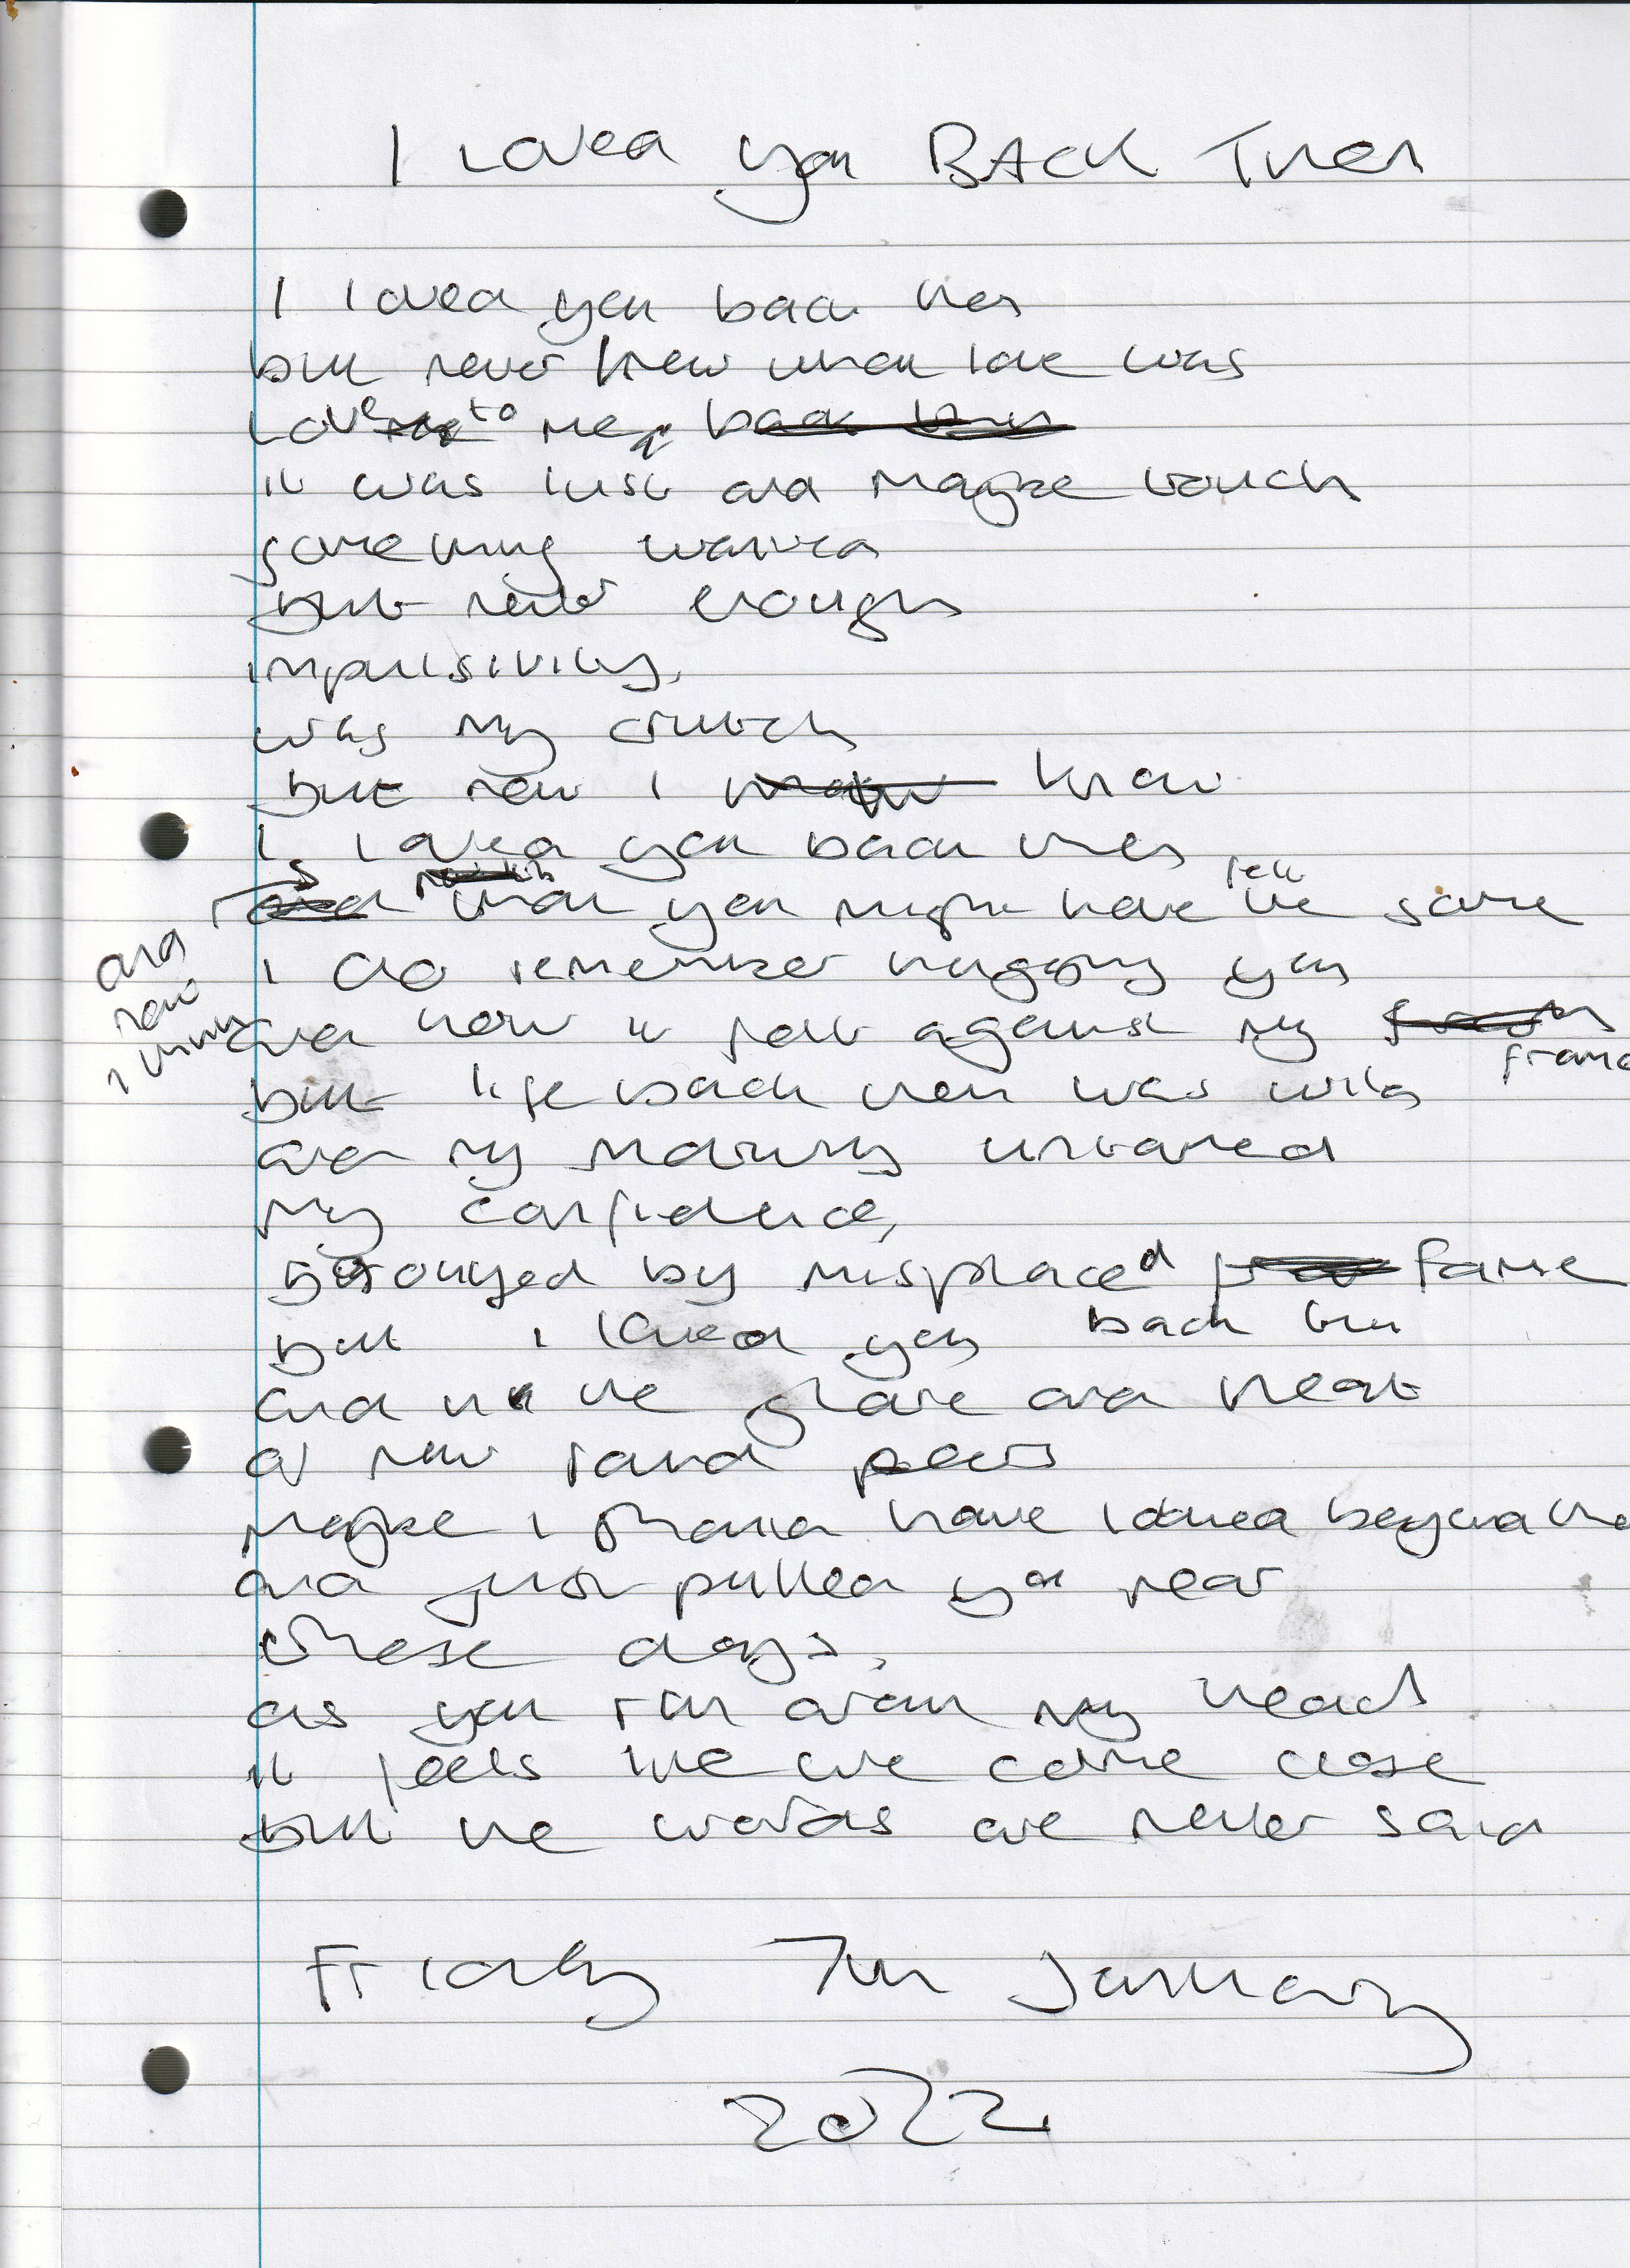 I Loved you BACK Then
I loved you back then
but never knew what love was
Love to me,
it was lust and maybe touch
something wanted
but never enough
impulsivity,
was my crutch
but now I know
I loved you back then
and now I think
that you might have felt the same
I do remember hugging you
and how it felt against my frame
but life back then was wild
and my maturity untamed
my confidence,
buoyed by misplaced fame
but I loved you back then
and in the glare and heat
of new found
Maybe I should have looked beyond
and just pulled you near
these days,
as you run around my head
it feels like we come close
but the words are never said
Friday 7th January
2022